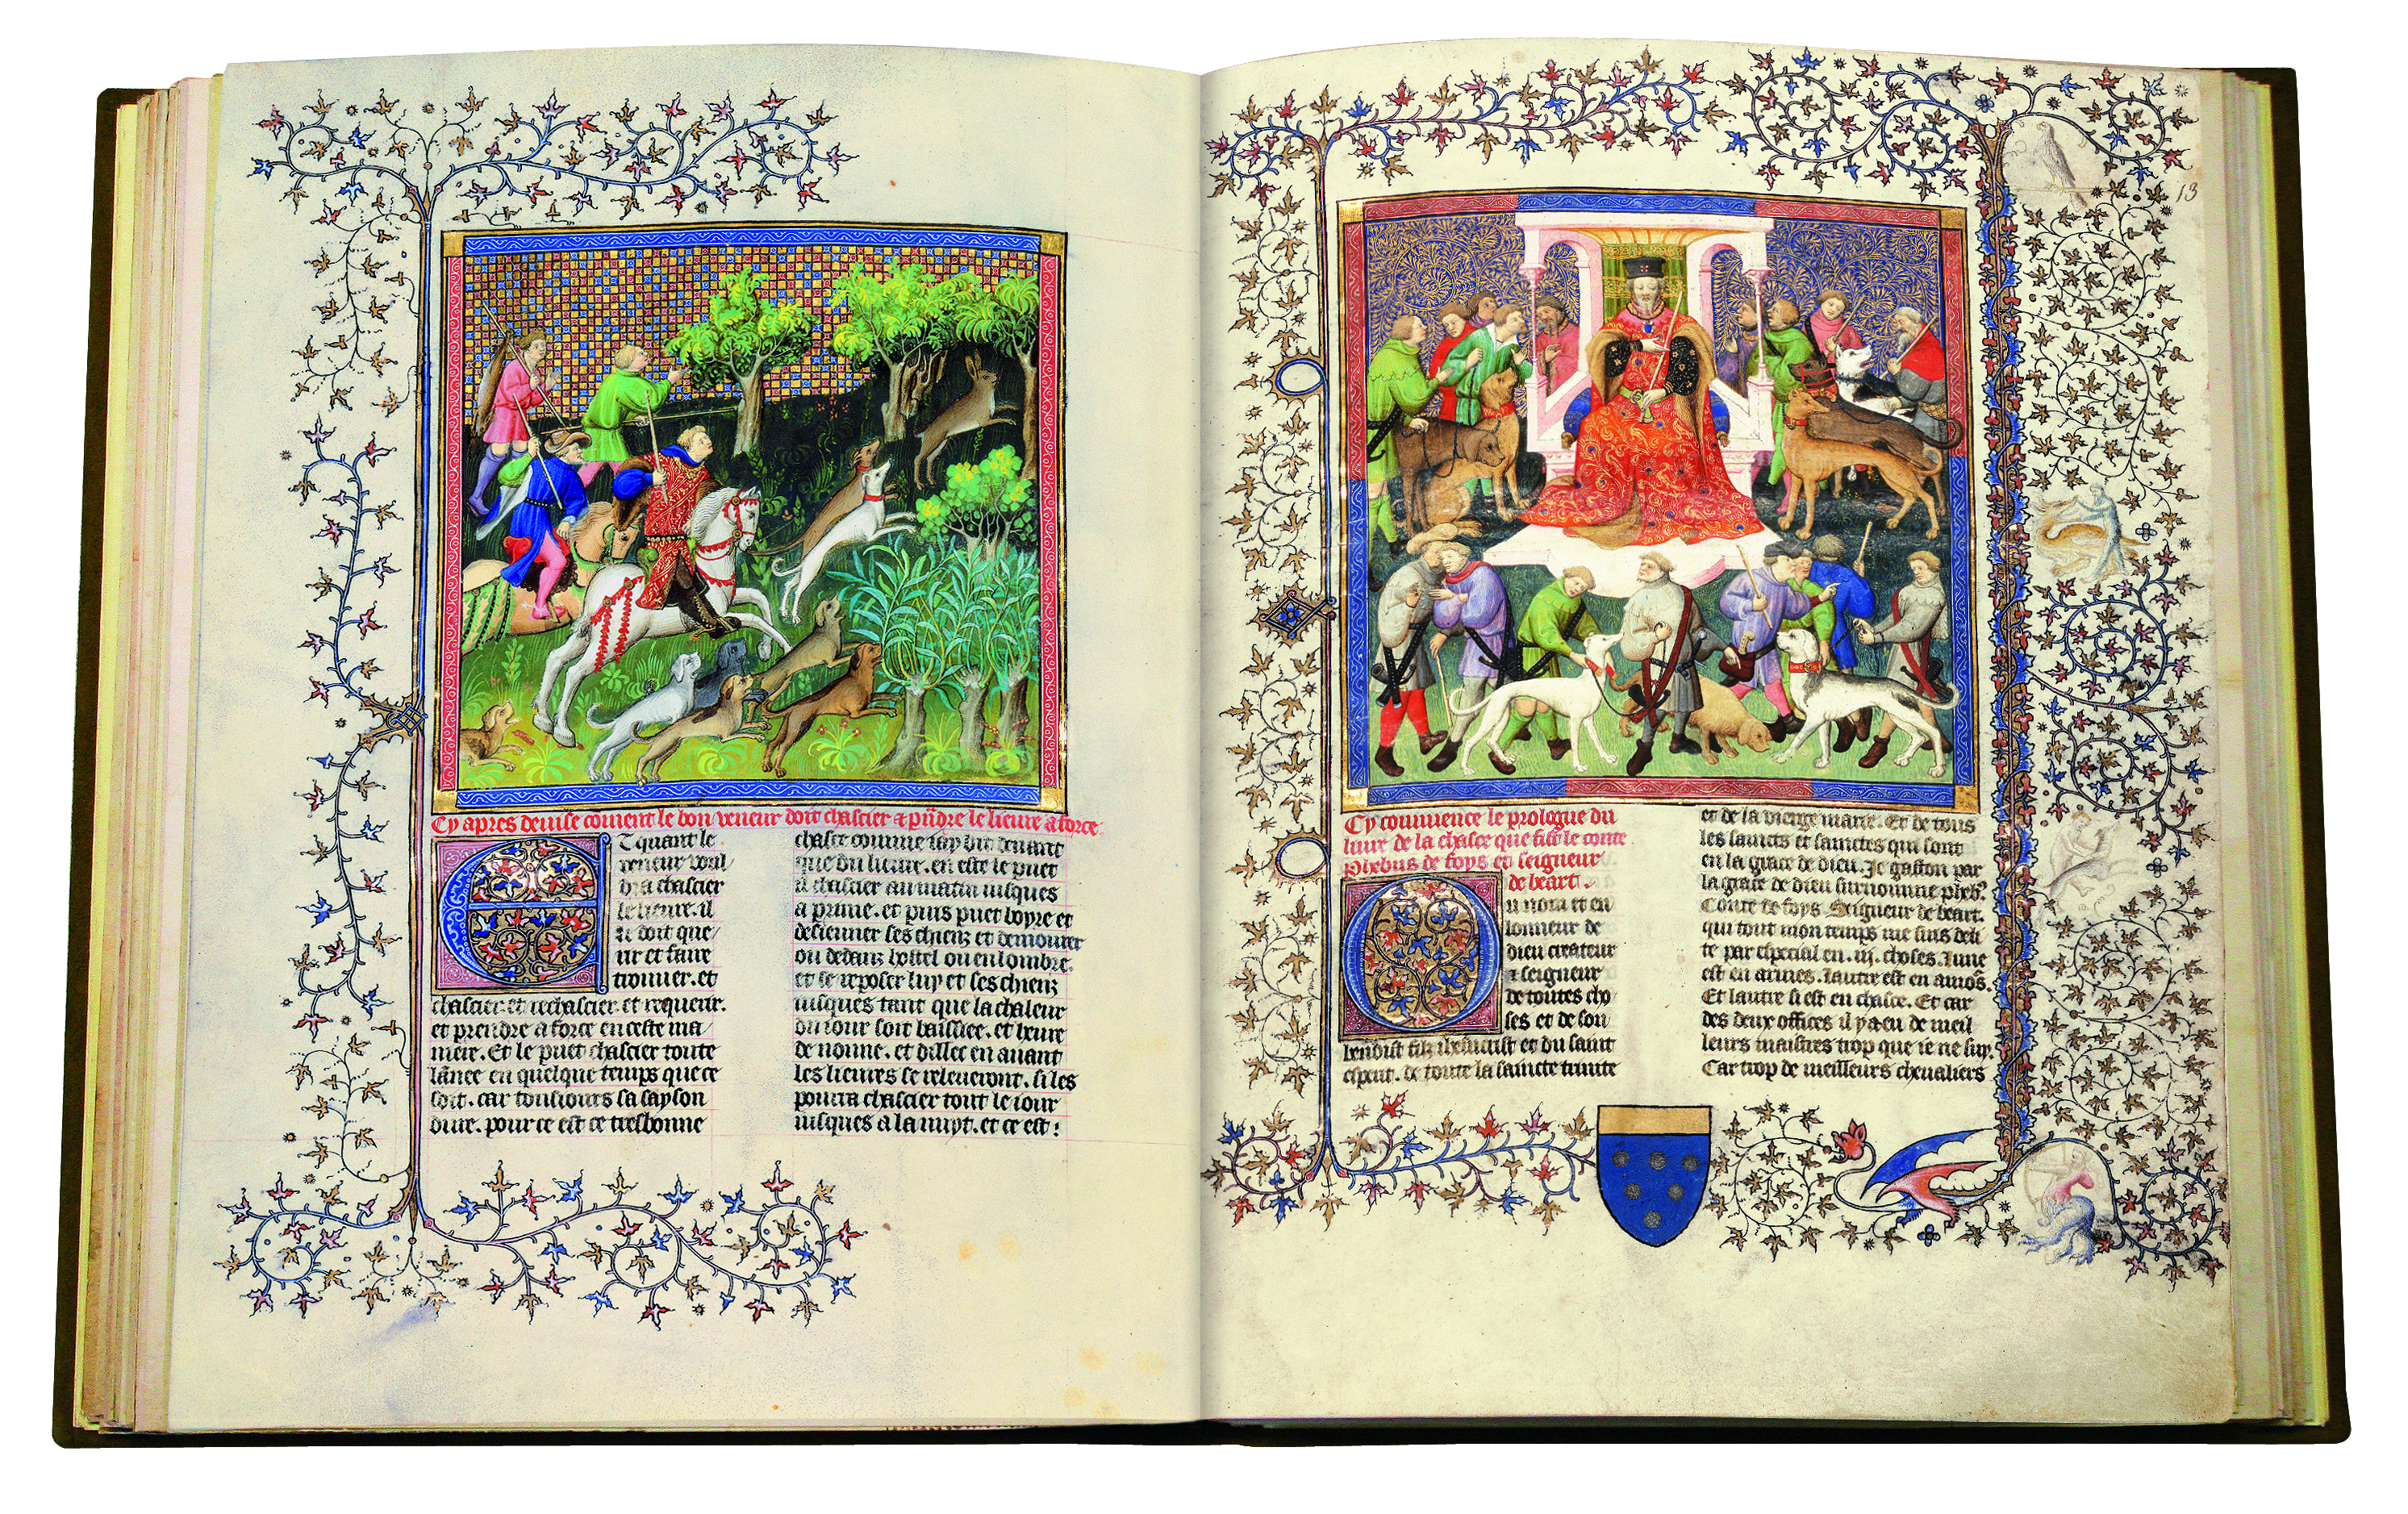 Cy apres deuise coment le bon veneur doit chascier & prẽdre le lieure a force.
Et quant le
veneur voul/
dra chascier
le lieure. il
le doit que/
rir et faire
trouuer. et
chascier et rechascier. et requerir.
et prendre a force en ceste ma/
niere. Et le puet chascier toute
lãnee en quelque temps que ce
soit. car tousiours sa sayson
dure. pour ce est ce tresbonne
chasce comme iay dit deuant
que du lieure. en este le puet
il chascier au matin iusques
a prime. et puis puet boyre et
desieuner ses chienz et demourer
ou dedanz hostel ou en lombre.
et se reposer luy et ses chienz
iusques tant que la chaleur
du iour soit baissiee. et heure
de nonne. et dillec en auant
les lieures se releueront. si les
pourra chascier tout le iour
iusques a la nuyt. et ce est:
13
Cy commence le prologue du
liure de la chasce que fist le conte
Phebus de foys et seigneur
de beart.
Ou nom et en
lonneur de
dieu createur
& seigneur
de toutes cho/
ses et de son
benoist filz ihesucrist et du saint
esperit. de toute la saincte trinite
et de la vierge marie. Et de tous
les saincts et sainctes qui sont
en la grace de dieu. Je gaston par
la grace de dieu surnomme pheb⁹.
Conte de foys. Seigneur de beart.
qui tout mon temps me suis deli
te par especial en .iij. choses. Lune
est en armes. lautre est en amo^rs.
Et lautre si est en chasce. Et car
des deux offices il y a eu de meil
leurs maistres trop que ie ne suy.
Car trop de meilleurs cheualiers